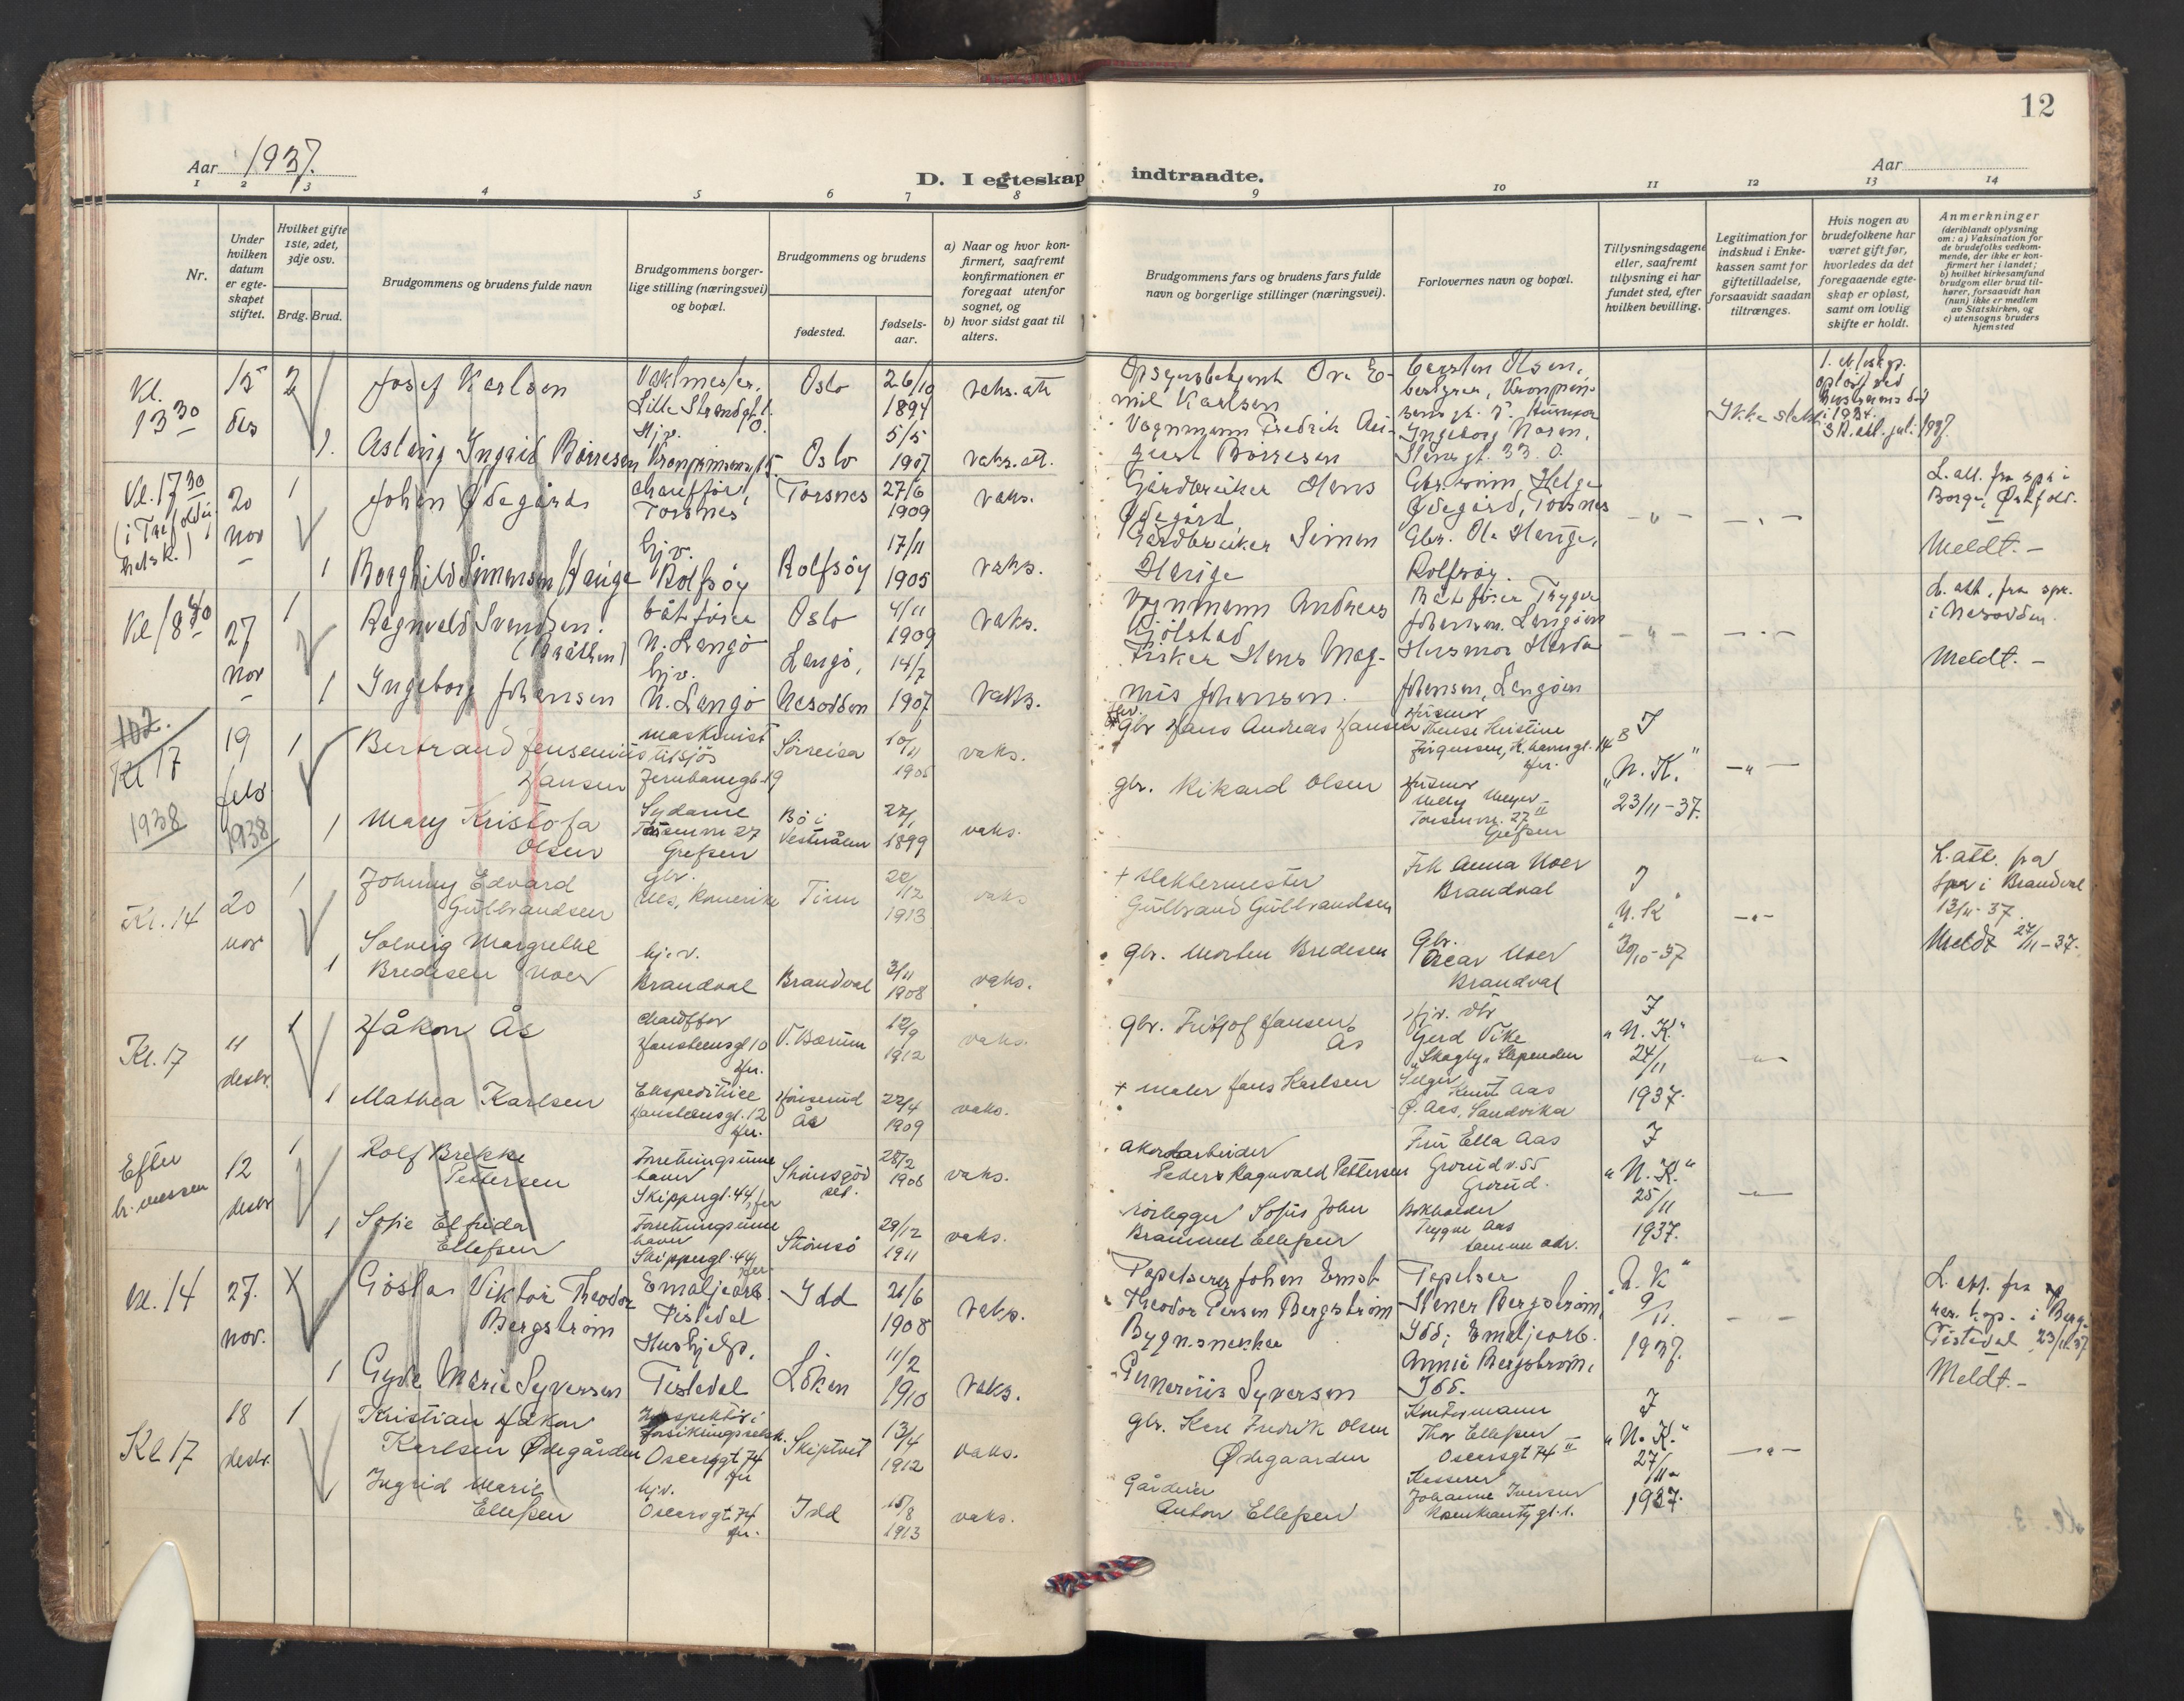 12
Aar 1937.
D. I egteskap indtraadte.
Aar
1 2 3 4 5 6 7 8 9 10 11 12 13 14
Nr.
Under
hvilken
datum
er egte-
skapet
stiftet.
Hvilket gifte
1ste, 2det,
3dje osv.
Brdg. Brud.
Brudgommens og brudens fulde navn
Brudgommens borger-
lige stilling (næringsvei)
og bopæl.
Brudgommens og brudens
fødested.
fødsels-
aar.
a) Naar og hvor kon-
firmert, saafremt
konfirmationen er
foregaat utenfor
sognet, og
b) hvor sidst gaat til
alters.
Brudgommens fars og brudens fars fulde
navn og borgerlige stillinger (næringsvei).
Forlovernes navn og bopæl.
Tillysningsdagene
eller, saafremt
tillysning ei har
fundet sted, efter
hvilken bevilling.
Legitimation for
indskud i Enke-
kassen samt for
giftetilladelse,
forsaavidt saadan
tiltrænges.
Hvis nogen av
brudefolkene har
været gift før,
hvorledes da det
foregaaende egte-
skap er opløst,
samt om lovlig
skifte er holdt.
Anmerkninger
(deriblandt oplysning
om: a) Vaksination for
de brudefolks vedkom-
mende, der ikke er kon-
firmert her i landet;
b) hvilket kirkesamfund
brudgom eller brud til-
hører, forsaavidt han
(hun) ikke er medlem
av Statskirken, og
c) utensogns bruders
hjemsted
Kl. 13 30
15 des
2
Josef Karlsen
Vaktmester,
Lille Strandgt.
Oslo
26/10 1894
vaks. att.
mil Karlsen
1.
Aslaug Ingrid Börresen
Hjv.
Kronprinsensgt. 5
Oslo
5/5 1907
vaks. att.
Vognmann Fredrik Au-
gust Börresen
Ingeborg Nasen,
Stensgt. 33. O.
Kl. 17 30
20 nov
1
Johan Ødegård
chauffør,
Torsnes
Torsnes
27/6 1909
vaks.
Gårdbruker Hans
Ødegård
Gbr. Helge
Ødegård, Torsnes
— " —
L. att. fra spr. i
Borge, Østfold.
Meldt. —
1
Borghild Simensen Hauge
hjv.
Rolfsøy
Rolfsøy
17/11 1905
vaks.
Gårdbruker Simen
Hauge
Gbr. Ole Hauge,
Rolfsøy.
Kl 18 30
27 nov
1
Ragnvald Svendsen.
(Bråthen)
båtfører
N. Langø
Oslo
4/11 1909
vaks.
Vognmann Andreas
Kjölstad
Båtfører Trygve
Johansen. Langöen
— " —
L. att. fra spr.
i Nesodden.
Meldt. —
1
Ingeborg Johansen
hjv.
N. Langø
Langö,
Nesodden
14/7 1907
vaks.
Fisker Hans Mag-
nus Johansen.
Husmor Hulda
Johansen, Langöen
102.
Kl 17
1938
19 febr 1938
1
Bertrand Jensenius
Hansen
maskinist
tilsjös
Jernbanegt. 19
Sörreisa
10/11 1905
vaks.
Gbr Hans Andreas Hansen
Husmor
Therese Kristine
Jörgensen, K. havngt. 14 B
her.
I
"N. K."
23/11-37.
— " —
1
Mary Kristofa
Olsen
Sydame
Torsenvn 27
Grefsen
Bö i
Vesterålen
27/1 1899
vaks.
gbr. Rikard Olsen
Husmor
Nelly Meyer
Torsenvn. 27 II
Grefsen
Kl. 14
20 nov
1
Johnny Edvard
Gulbrandsen
Gbr.
Nes, Romerike
Tinn
20/12 1913
vaks
+ Meklermester
Gulbrand Gulbrandsen
Frk Anna Noer
Brandval
I
"N. K"
30/10-37
— " —
L. att. fra
spr i Brandval
13/11-37.
Meldt 27/11-37.
1
Solveig Margrethe
Bredesen Noer
hj.v.
Brandval
Brandval
3/11 1908
vaks.
gbr. Morten Bredesen
Gbr.
Oscar Noer
Brandval
Kl. 17
11 desbr.
1
Håkon Ås
chauffør
Hansteensgt 10
her.
V. Bærum
12/9 1912
vaks.
gbr. Fritjof Hansen
Ås
Gerd Vike
"Skogly" Slependen
I
"N. K."
24/11
1937.
— " —
1
Mathea Karlsen
Ekspeditrice
Hansteensgt. 12
her.
Ås
22/4 1909
vaks.
+ maler Jens Karlsen
Selger
Knut Aas
Ø. Aas, Sandvika
Efter
h. messen
12 desbr
1
Rolf Brekke
Pettersen
Forretningsinne
haver
Skippergt. 44, her
28/2 1906
vaks.
akordarbeider
Peder Ragnvald Pettersen
Fru Ella Aas
Grorudv. 55
Grorud.
I
"N. K."
25/11
1937.
1
Sofie Elfrida
Ellefsen
Forretningsinne
haver
Skippergt. 44
her.
Strömsö
29/12 1911
vaks.
rörlegger Sofus John
Brammel Ellefsen
Bokholder
Trygve Aas
samme adr.
Kl. 14
27. nov.
X
Gösta Viktor Theodor
Bergström
Emaljearb.
Tistedal
Idd
26/6 1908
vaks.
Tapetserer Johan Ernst
Theodor Persen Bergström
Tapetser
Stener Bergström,
Idd; Emaljearb.
Annie Bergström,
Idd.
"N. K"
9/11.
1937.
— —
Tistedal 23/11 37
Meldt. —
1
Gyda Marie Syversen
Hushjelp,
Tistedal
Löken
11/2 1910
vaks.
Bygn.snekker
Gunerius Syversen
Kl 17
18 desbr.
1
Kristian Håkon
Karlsen Ødegården
Inspektör i
forsikringsselsk.
Oscarsgt 74
her
Skiptvet
13/4 1912
vaks.
gbr. Karl Fredrik Olsen
Ødegaarden
Kontormann
Thor Ellefsen
Oscarsgt 74 II
I
"N. K."
27/11
1937.
— " —
Ingrid Marie
Ellefsen
hjv.
Oscarsgt. 74
her.
Idd
15/8 1913
vaks.
Gårdeier
Anton Ellefsen
Kasserer
Johanne Iversen
Rosenkrantzgt. 1.